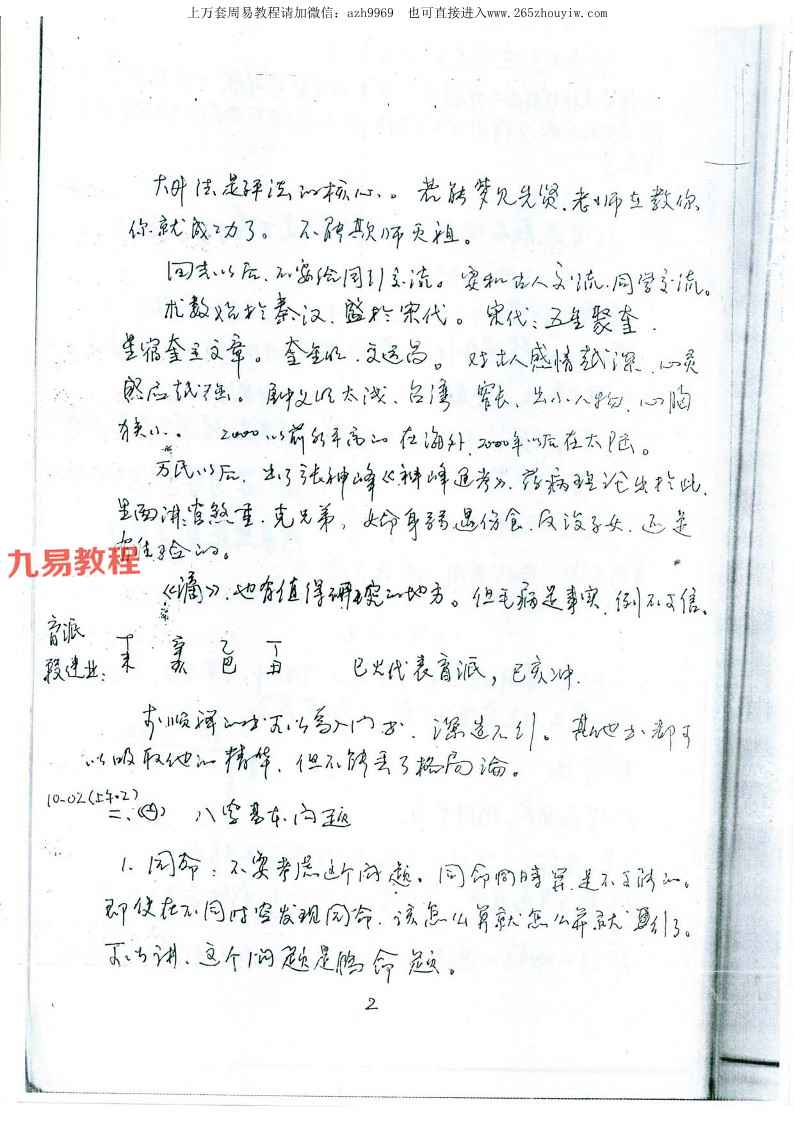 上万套周易教程请加微信：azh9969 也可直接进入www.265zhouyiw.com
大外法是评法的核心。若能梦见先贤、老师在教你
你就成功了。不能欺师灭祖。
回去以后，不要给同引交流。要和古人交流、同学交流。
术数始于秦汉，盛于宋代。宋代：五星聚奎，
星宿奎主文章。奎星明，文运昌。对古人感情越深，心灵
感应越强。文化太浅、台湾 出小人物，心胸
狭小。2000以前水平高的在海外，2000年以后在大陆。
万民以后，出了张神峰《神峰通考》，药病理论出于此，
里面讲官煞重，克兄弟，女命身弱遇伤食，反没子女，还是
验的。
九易教程
《滴》，也有值得研究的地方。但毛病是事实，例不可信。
盲派
段建业：丁未 辛亥 乙巴 丁丑 巳火代表盲派，巳亥冲。
书可以为入门书，深造不引。其他书都可
以吸取他的精华，但不能丢了格局论。
10-02(上午.2)
二、(四) 八字基本问题
1. 同命：不要考虑这个问题。同命同时算是不可能的。
即使在不同时空发现同命，该怎么算就怎么算就引了。
可以讲，这个问题是脑命题。
2